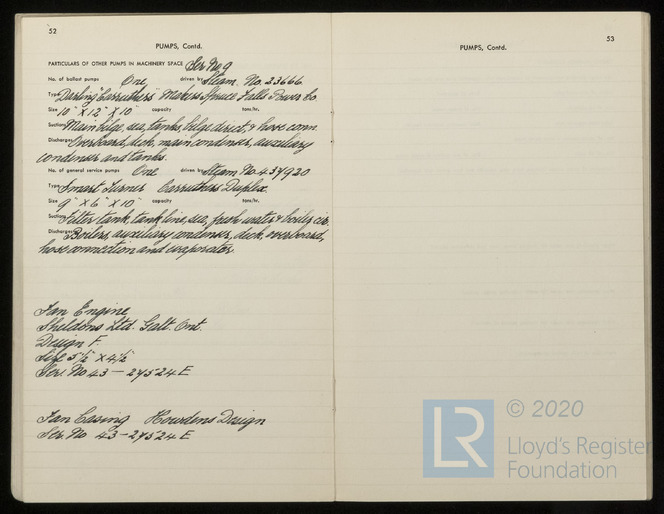 52
PUMPS, Contd.
PARTICULARS OF OTHER PUMPS IN MACHINERY SPACE Ser. No. 9
No. of ballast pumps One driven by Steam. No. 23666
Type Darling "Carruthers" Makers Spruce Falls Power Co.
Size 10" X 12" X 10" capacity tons/hr.
Suctions Main bilge, sea, tanks, bilge direct, & hose conn.
Discharges Overboard, deck, main condenser, auxiliary
condenser and tanks.
No. of general service pumps One driven by Steam No. 434920
Type Smart Turner Carruthers Duplex.
Size 9" X 6" X 10" capacity tons/hr.
Suctions Filter tank, tank line, sea, fresh water & boiler cir.
Discharges Boilers, auxiliary condenser, deck, overboard,
hose connection and evaporator.
Fan Engine
Sheldons Ltd. Galt. Ont.
Design F.
Size 5½" X 4½"
Ser. No 43 - 27524 E
Fan Casing Howdens Design
Ser. No 43 - 27524 E
53
PUMPS, Contd.
LR
© 2020
Lloyd's Register
Foundation